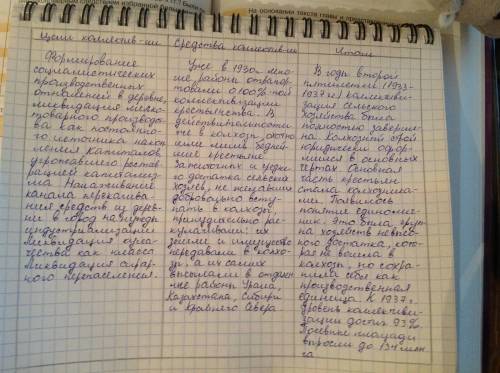 На основании текста главы и
Цели коллектив-ии
Формирование
социалистических
производственных
отношений в деревне,
ликвидация мелко-
товарного производст-
ва как постоянно-
го источника накоп-
ления капиталов,
рацией капитализ-
ма Налаживание
канала перекачива-
ния средств из дерев-
ни в город на нужды
индустриализации.
Ликвидация кула-
чества как класса
Ликвидация аграр-
ного перенаселения.
Средства коллектив-ии
Уже в 1930г. мно-
гие районы отрапор-
товали о 100%-ной
коллективизации
крестьянства. В
действительности
же в колхоз охотно
шли лишь бедней-
шие крестьяне
Зажиточных и средне-
го достатка сельских
хозяев, не желавших
добровольно всту-
пать в колхозы,
принудительно рас-
кулачивали: их
землю и имущество
передавали в колхо-
зы, а их самих
высылали в отдален-
ные районы Урала,
Казахстана, Сибири
и Крайнего Севера
Итоги
В годы второй
пятилетки (1933-
1937гг) коллективи-
зация сельского
хозяйства была
полностью заверше-
на. Колхозный строй
юридически офор-
мился в основных
чертах. Основная
часть крестьян
стала колхозника-
ми. Появилось
понятие единолич-
ник. Это была груп-
па хозяйств невысо-
кого достатка, кото-
рая не вошла в
колхоз, но сохра-
нила себя как
производственная
единица. К 1937г.
уровень коллективи-
зации достиг 93%.
Посевные площади
выросли до 134 млн
га